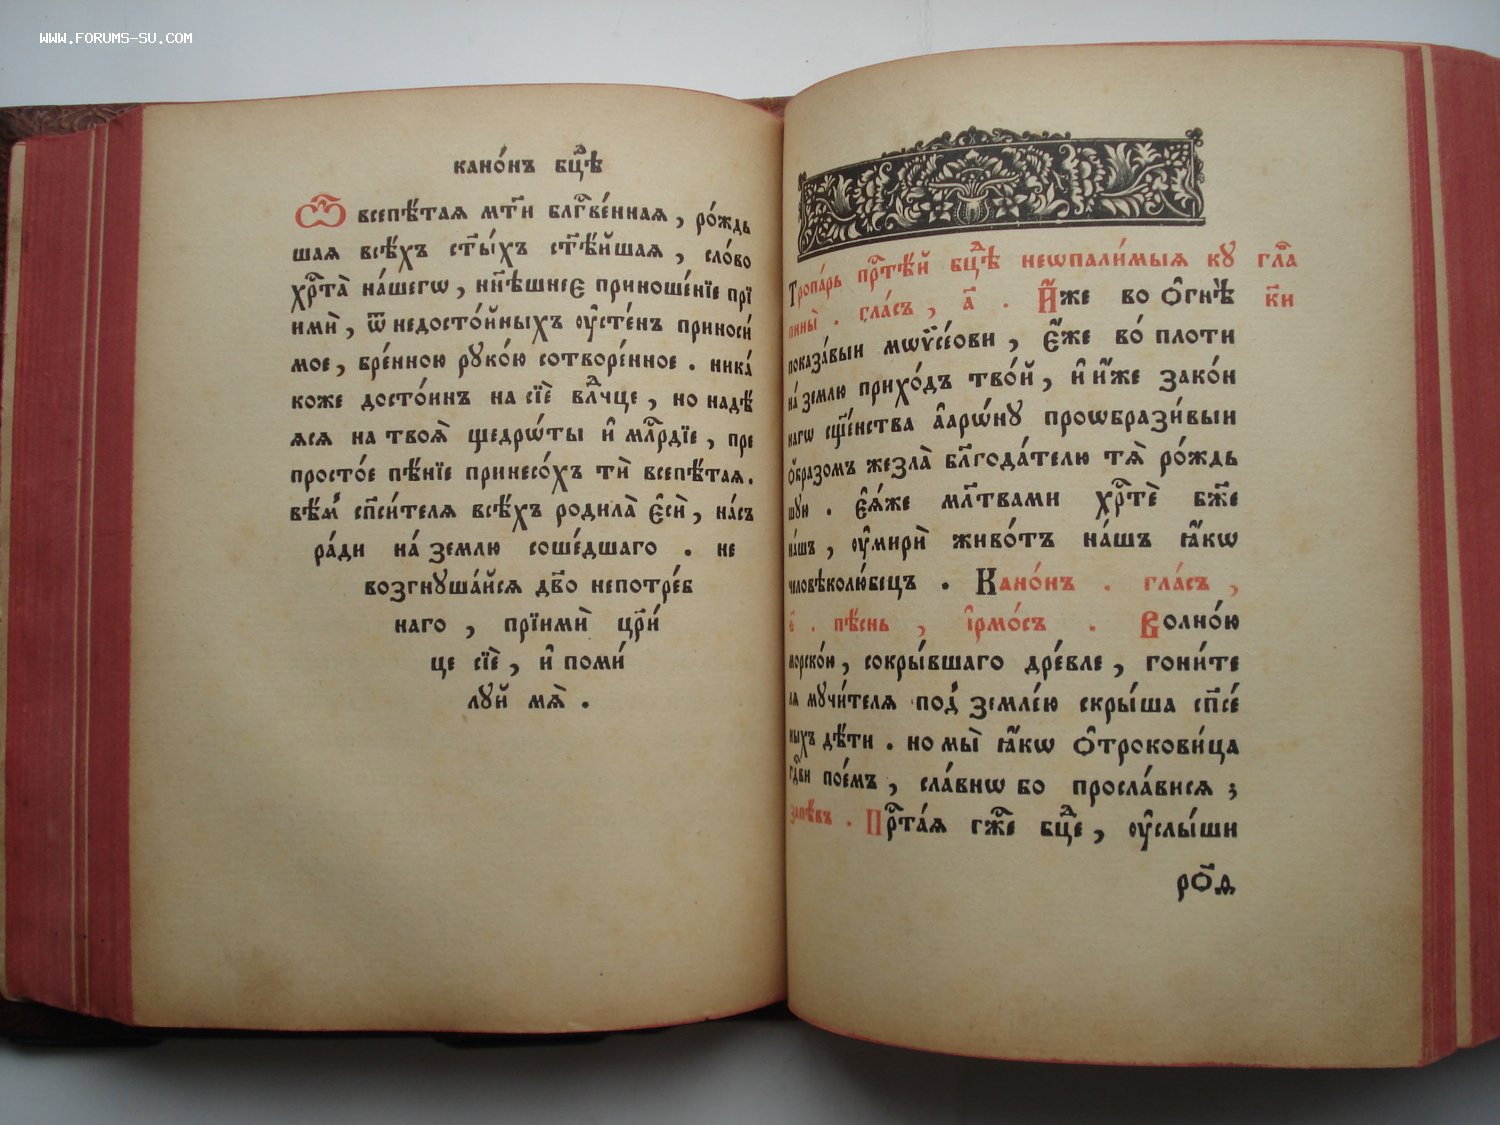 WWW.FORUMS-SU.COM
кано́нъ бцⷣѣ
Ѽ всепѣ́тая мт҃и блг҃ве́нная, ро́ждь
шая всѣ́хъ ст҃ы́хъ ст҃ѣ́йшая, сло́во
хрⷭ҇та̀ на́шегѡ, нн҃ѣшнее приноше́нїе прї
имѝ, ѿ недосто́йныхъ ѹ҆сте́нъ приноси́
мое, бре́нною рꙋко́ю сотворе́нное. ника́
коже досто́инъ на сїѐ влⷣчце, но надѣ́
ѧся на твоѧ̀ щедрѡ́ты и҆ млⷭ҇рдїе, пре
просто́е пѣ́нїе принесо́хъ тѝ всепѣ́тая.
вѣ́мъ сп҃си́теля всѣ́хъ родила̀ є҆сѝ, на́съ
ра́ди на́ землю соше́дшаго. не
возгнꙋша́йся ѹ҆́бо непотре́б
наго, прїимѝ цр҃и́
це сїѐ, и҆ поми́
лꙋй мѧ̀.
Тропа́рь прⷭ҇тѣ́й бцⷣѣ неѡпали́мыя кꙋ
пины̀. гла́съ, а҃. И҆́же во ѻ҆гнѣ̀
глⷡ҇а
к҃и
показа́выи мѡѷсе́ови, є҆́же во́ плоти
на́ землю прихо́дъ тво́й, и҆ и҆́же зако́н
нагѡ сщ҃е́нства а҆арѡ́нꙋ проѡбрази́выи
ѻ҆́бразомъ жезла̀ бл҃года́телю тѧ̀ ро́ждь
шꙋю. є҆ѧ́же мл҃твами хрⷭ҇тѐ бж҃е
на́шъ, ѹ҆мирѝ живо́тъ на́шъ ꙗ҆́кѡ
человѣколю́бецъ. Кано́нъ. гла́съ,
пѣ́снь, і҆рмо́съ. Волно́ю
морско́ю, сокры́вшаго дре́вле, гони́те
ля мꙋчи́теля под̾ земле́ю скры́ша сп҃се́
ныхъ дѣ́ти. но мы̀ ꙗ҆́кѡ ѻ҆трокови́ца
гдⷭ҇ви пое́мъ, сла́внѡ бо просла́вися;
запѣ́въ. Прⷭ҇та́я гж҃е бцⷣе, ѹ҆слы́ши
ро́д